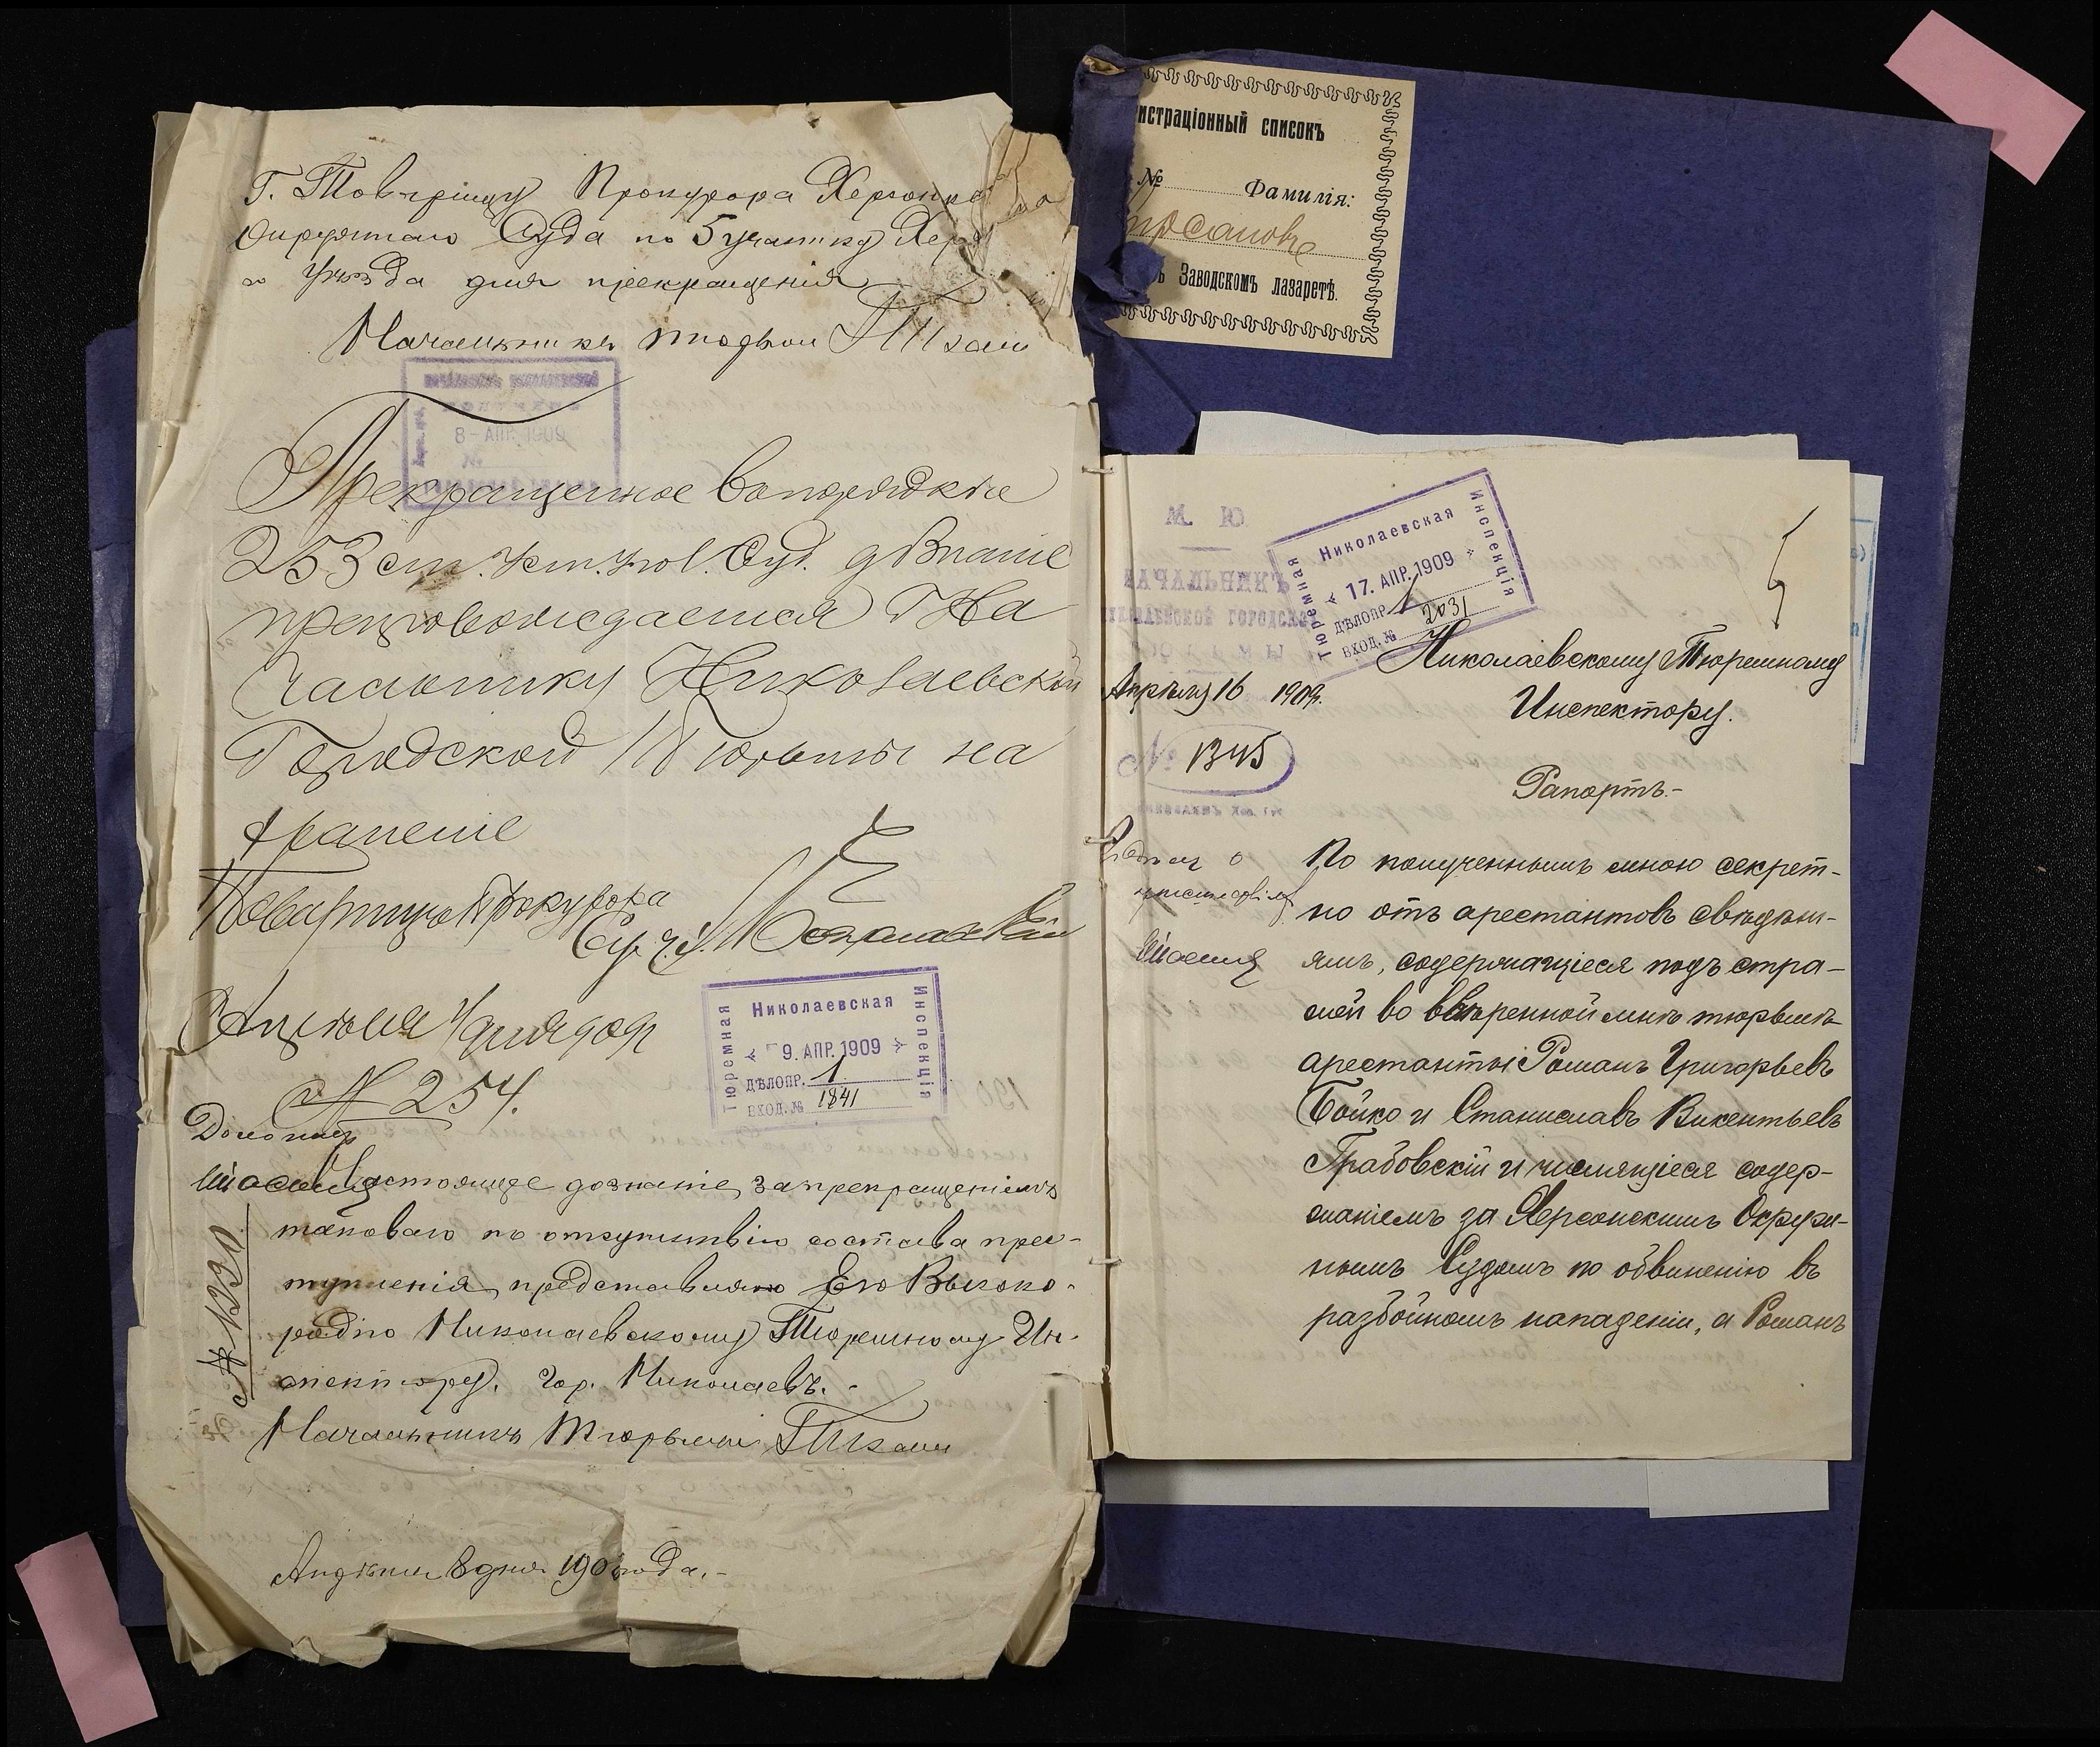 Г. Товарищу Прокурора Херсонска
Окружнаго Суда по 5 участку Херс
го Уѣзда для прекращенія
Начальникъ тюрьмы
8 - АПР. 1909
№
Прекращенное въ порядкѣ
253 ст. Уст. Угол. Суд. дознаніе
препровождается Г На
чальнику Николаевской
Городской Тюрьмы на
храненіе
Товарищъ Прокурора
Апрѣля 4 дня 1909 г.
№ 254.
Николаевская
Тюремная
Инспекція
9. АПР. 1909
ДѢЛОПР. 1
ВХОД. № 1841
Настоящее дознаніе, за прекращеніемъ
таковаго по отсутствію состава прес-
тупленія, представляю Его Высоко-
родію Николаевскому Тюремному Ин-
спектору. гор. Николаевъ.-
№ 1220
Начальникъ Тюрьмы
Апрѣля 8 дня 190 года.-
истраціонный списокъ
№ Фамилія:
Заводскомъ лазаретѣ.
М. Ю.
НАЧАЛЬНИКЪ
ГОРОДСКОЙ
Николаевская
Тюремная
Инспекція
17. АПР. 1909
ДѢЛОПР. 1
ВХОД. № 2031
5
Николаевскому Тюремному
Инспектору.
Апрѣля 16 1909 г.
№ 1345
Рапортъ.-
По полученнымъ мною секрет-
но отъ арестантовъ свѣдѣні-
ямъ, содержащіеся подъ стра-
жей во ввѣренной мнѣ тюрьмѣ
арестанты Романъ Григорьевъ
Бойко и Станиславъ Викентьевъ
Грабовскій и числящіеся содер-
жаніемъ за Херсонскимъ Окруж-
нымъ Судомъ по обвиненію въ
разбойномъ нападеніи, а Романъ